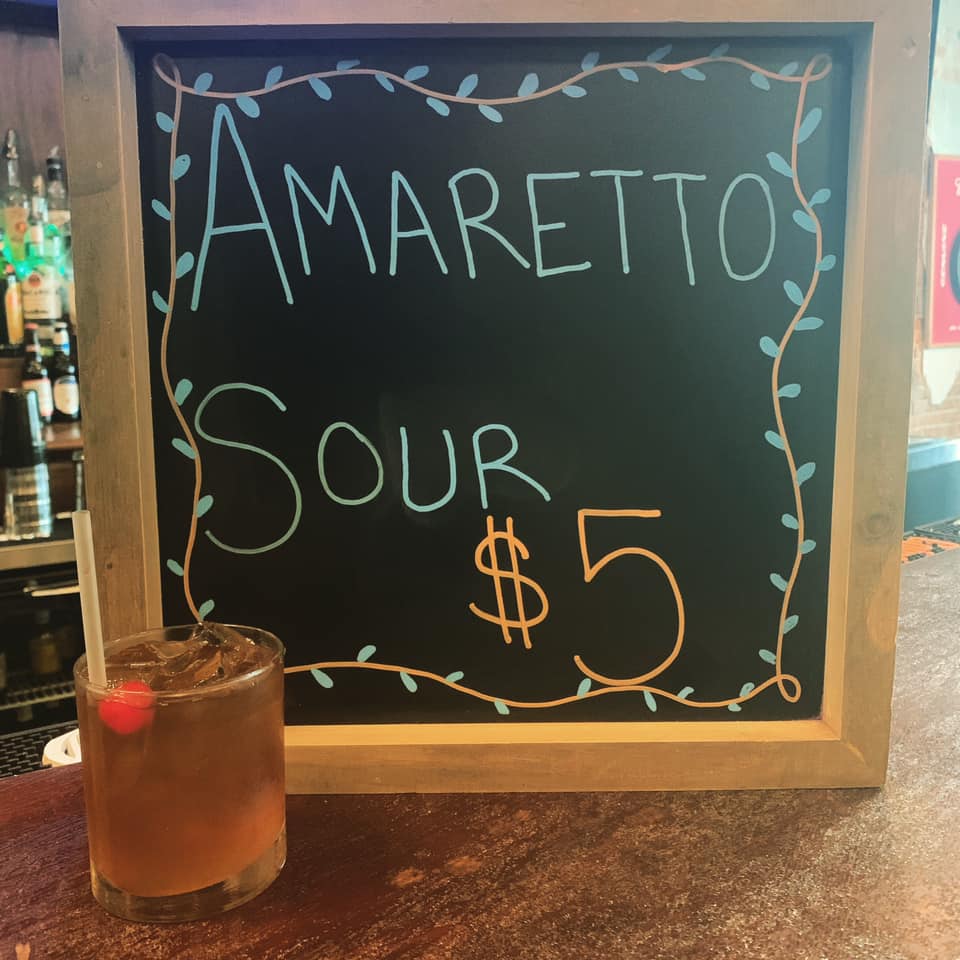 AMARETTO
SOUR
$5